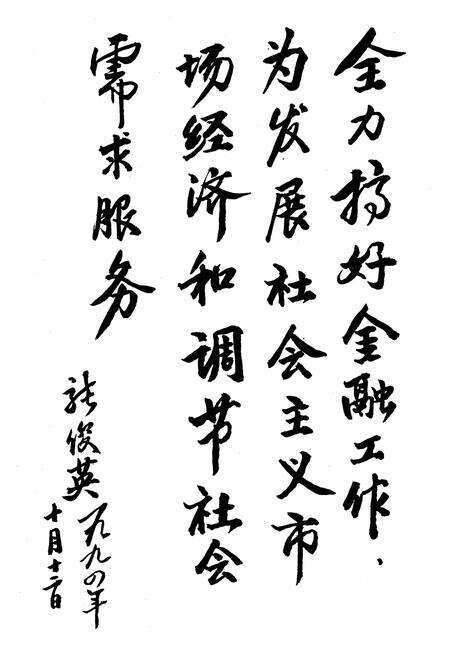 全力搞好金融工作、
为发展社会主义市
场经济和调节社会
需求服务
张俊英
一九九四年
十月十二日